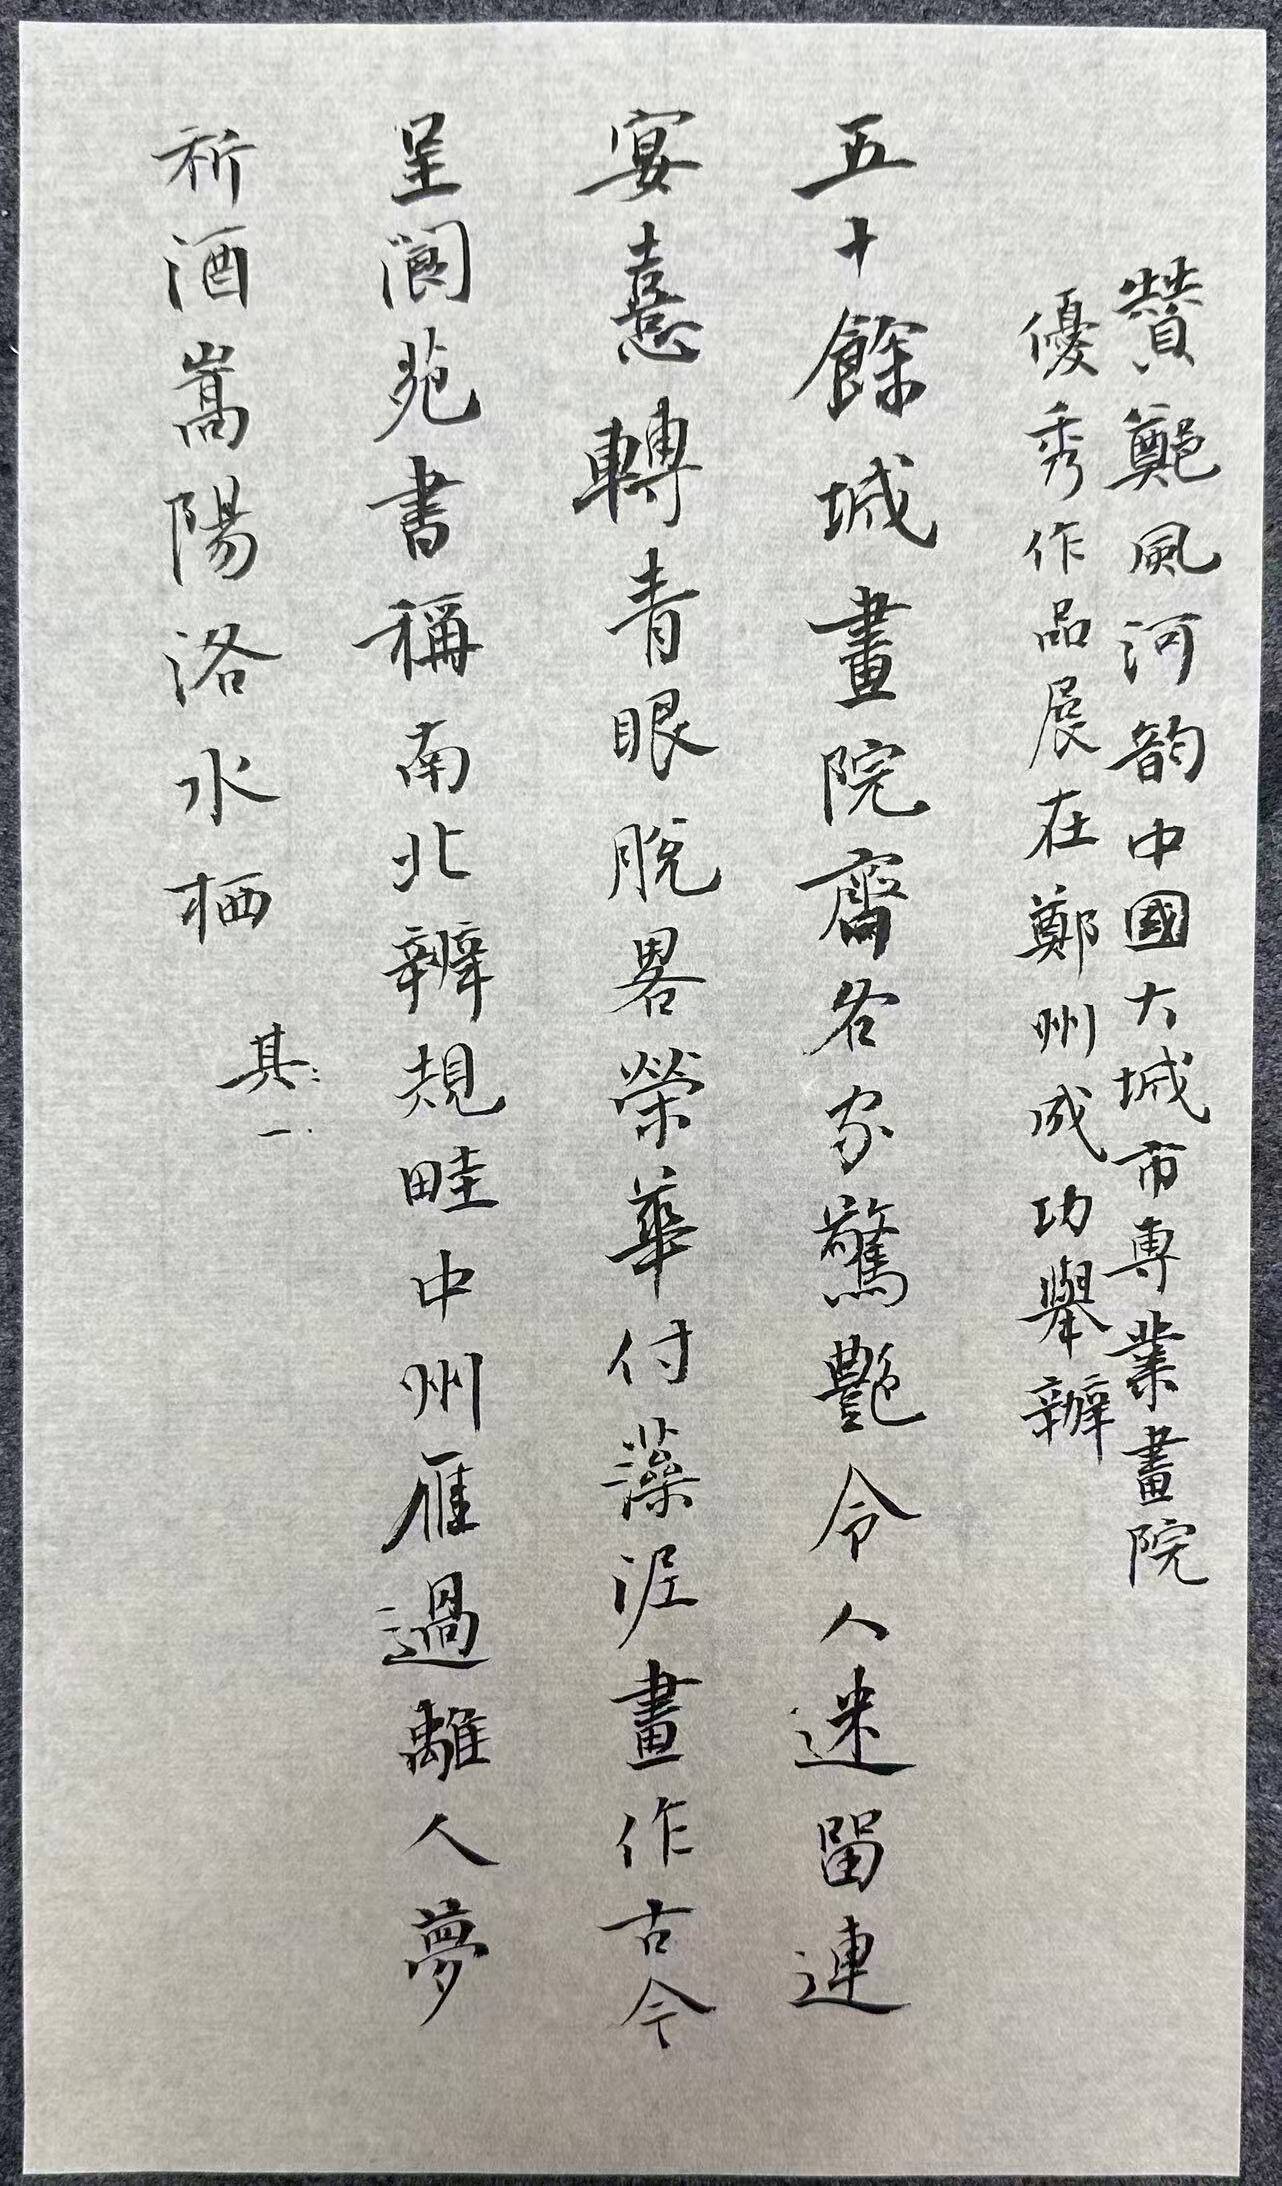 贊鄭風河韵中國大城市專業畫院
優秀作品展在鄭州成功舉辦
五十餘城畫院齋名家驚艷令人迷留連
宴憙轉青眼脫畧榮華付藻涯畫作古今
呈閬苑書稱南北辨規畦中州雁過離人夢
祈酒嵩陽洛水栖
其一